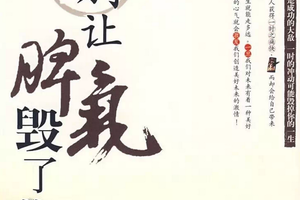 让
脾氣
毁了
是成功的大敌 一时的冲动可能毁掉你的一生
人获得一时之痛快
却会给自己带来
我们对未来有着一种美好
的心气就会
我们创造美好
未来的激情！